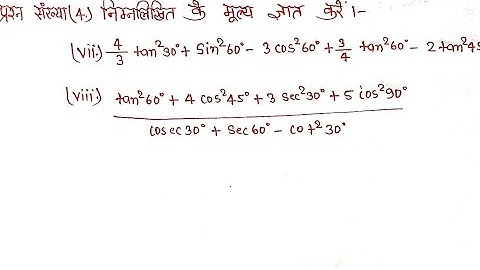 प्रश्न संख्या(4.) निम्नलिखित के मूल्य ज्ञात करें।-
(vii.) 4/3 tan²30° + sin²60° - 3 cos²60° + 3/4 tan²60° - 2 tan²45
(viii.) tan²60° + 4 cos²45° + 3 sec²30° + 5 cos²90°
cosec30° + sec60° - cot²30°